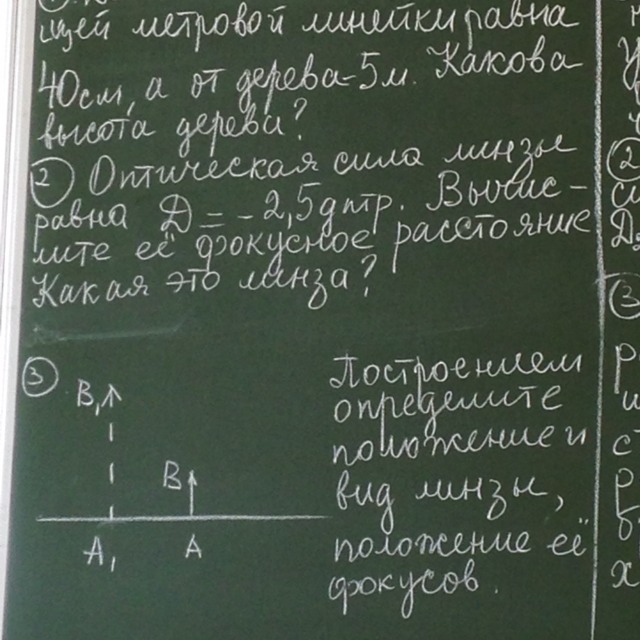 щей метровой линейки равна
40см, а от дерева-5м. Какова
высота дерева?
② Оптическая сила линзы
равна D = - 2,5 дптр. Вычис-
лите её фокусное расстояние
Какая это линза?
③
Построением
определите
положение и
вид линзы,
положение её
фокусов.
B₁
B
A₁ A
②
③